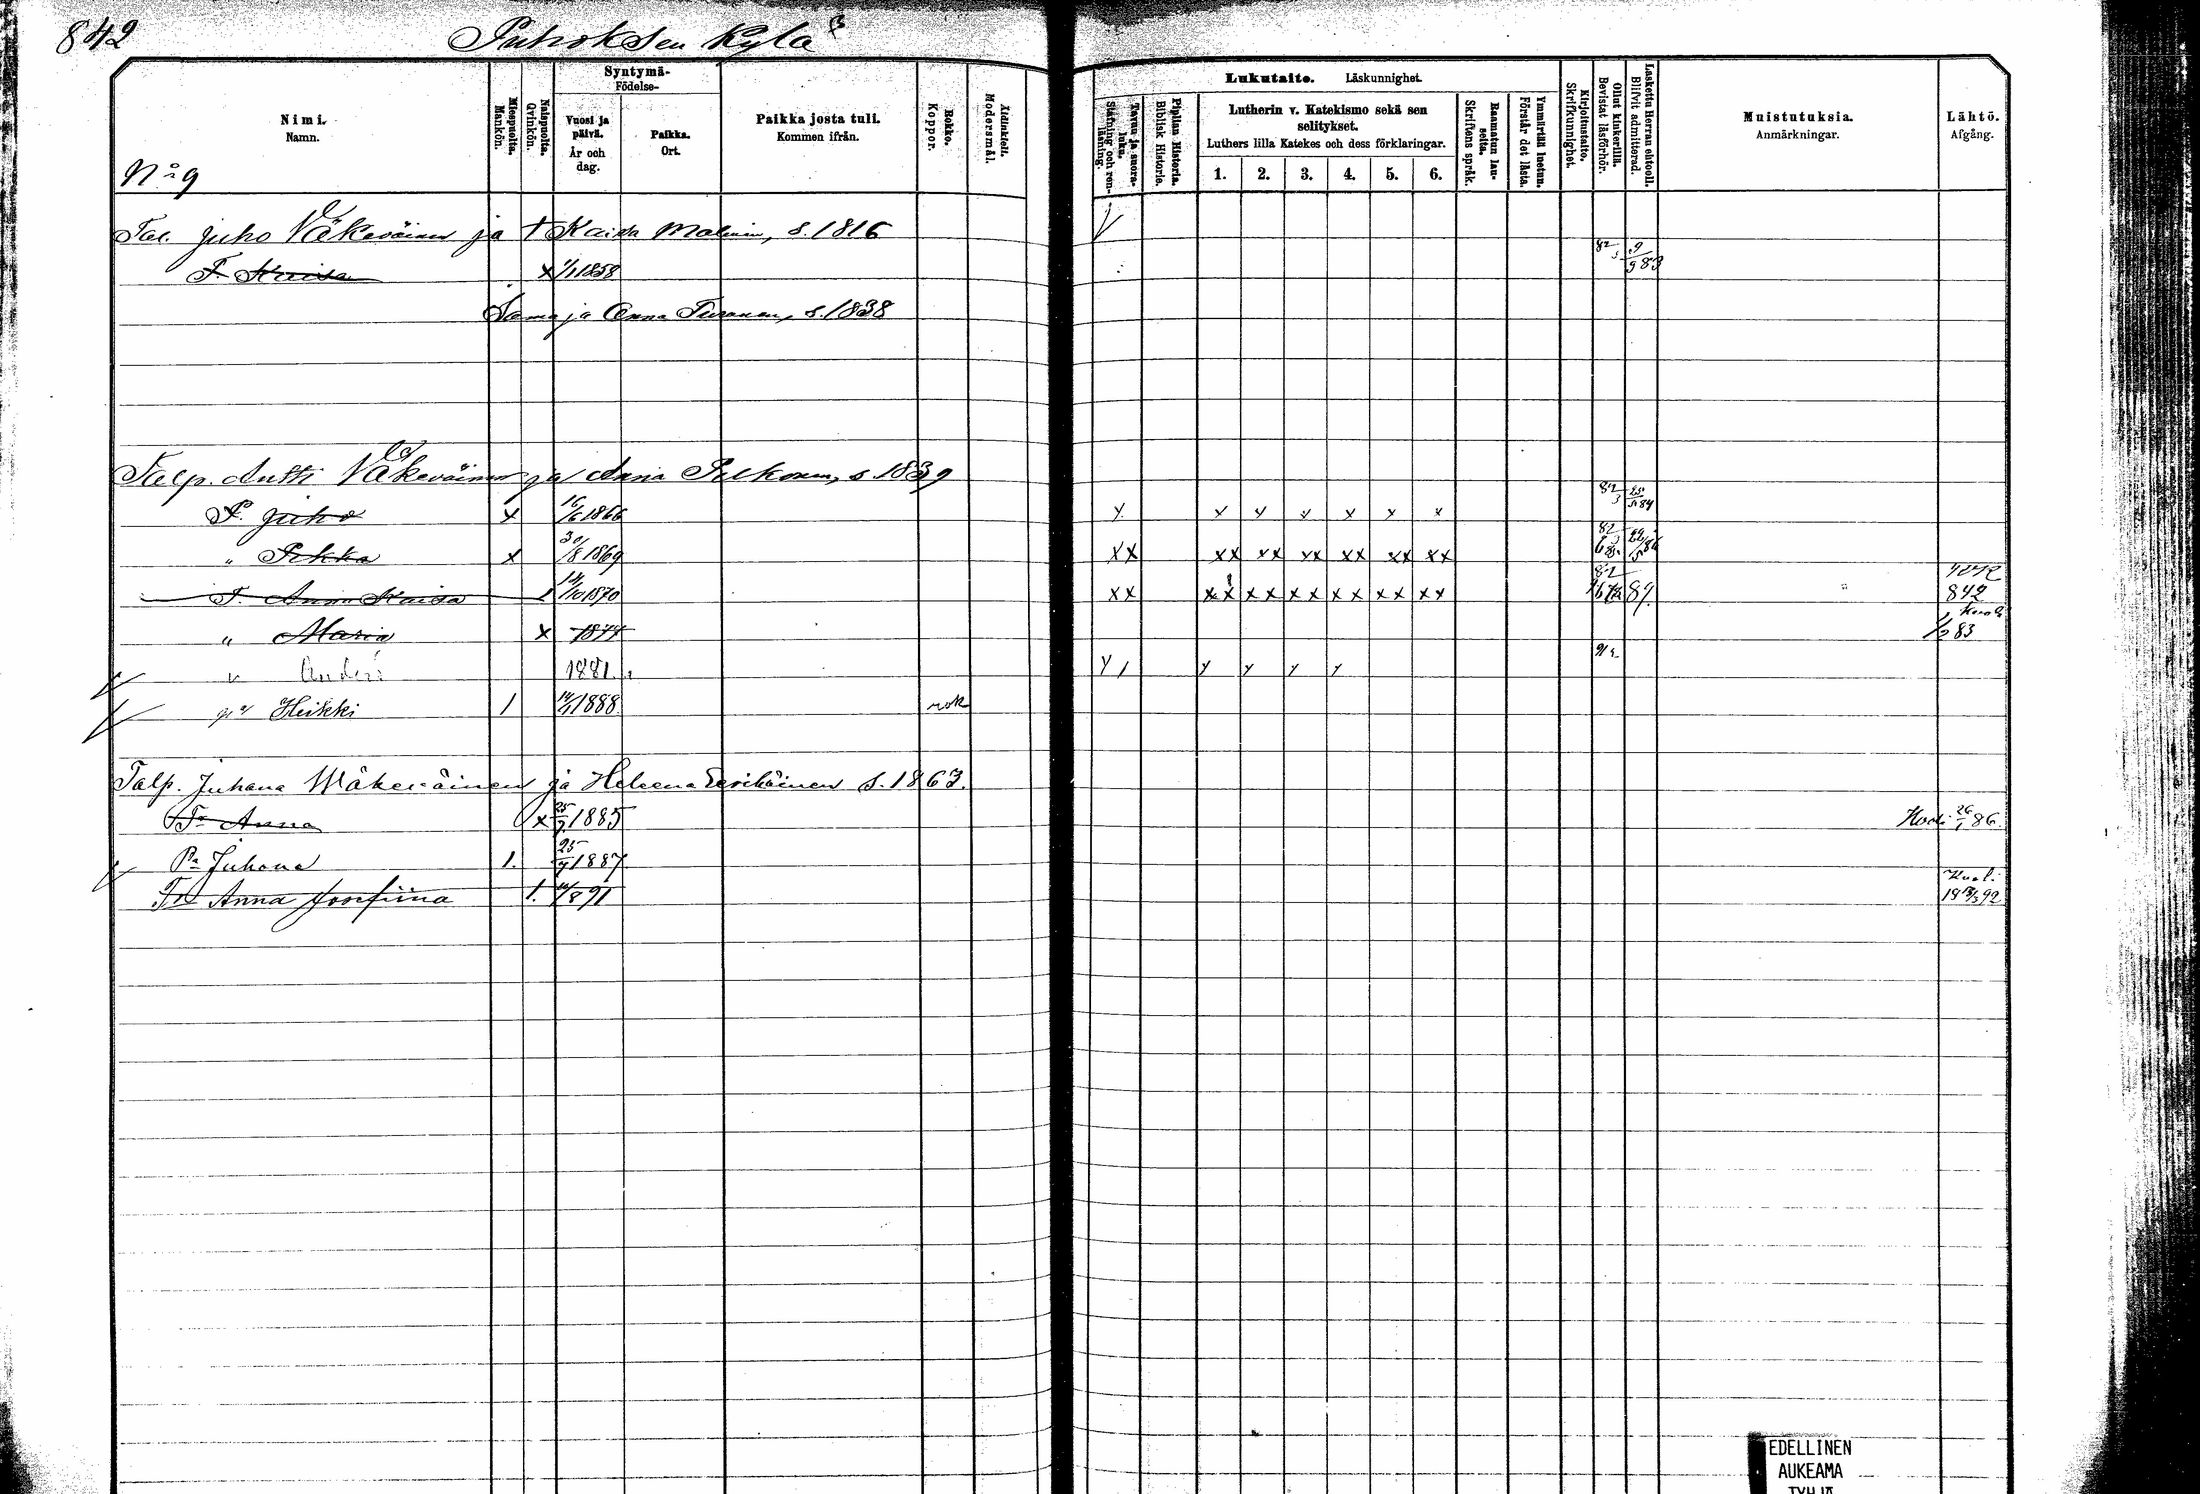 842
Puhoksen Kylä
Nimi.
Namn.
Miespuolta.
Mankön.
Naispuolta.
Qvinkön.
Syntymä-
Födelse-
Vuosi ja päivä.
År och dag.
Paikka.
Ort.
Paikka josta tuli.
Kommen ifrån.
Rokko.
Koppor.
Äidinkieli.
Modersmål.
Tavuu ja suora-luku.
Stafning och ren-läsning.
Piplian Historia.
Biblisk Historie.
Lukutaito. Läskunnighet.
Lutherin v. Katekismo sekä sen
selitykset.
Luthers lilla Katekes och dess förklaringar.
1. 2. 3. 4. 5. 6.
Raamatun lau-seita.
Skriftens språk.
Ymmärtää luetun.
Förstår det lästa.
Kirjoitustaito.
Skrifkunnighet.
Ollut kinkerillä.
Bevistat läsförhör.
Laskettu Herran ehtooll.
Blifvit admitterad.
Muistutuksia.
Anmärkningar.
Lähtö.
Afgång.
N:o 9
Tal. Juho Väkeväinen ja † Kaisa Malinin, s. 1816
T. Kaisa x 1/1 1858 82/3 9/9 83
Sama ja Anna Turunen, s. 1838
Talp. Antti Väkeväinen ja Anna Pelkonen, s 1839
P. Juho x 16/6 1866 x x x x x x x 82/3 84
" Pekka x 30/8 1869 xx xx xx xx xx xx xx 82
T. Anna Kaisa 1 14/10 1870 xx xx xx xx xx xx xx 82 89. 842
" Maria x 1877 83
" 1881
Heikki 1 1888 rok
Talp. Juhana Wäkeväinen ja Helena s. 1863.
Tr Anna x 25/7 1885 Kuoli 26/1 86.
Pa Juhana 1. 25/7 1887
Tr Anna Josefiina 1. 1891 Kuoli
92
EDELLINEN
AUKEAMA
TYHJÄ